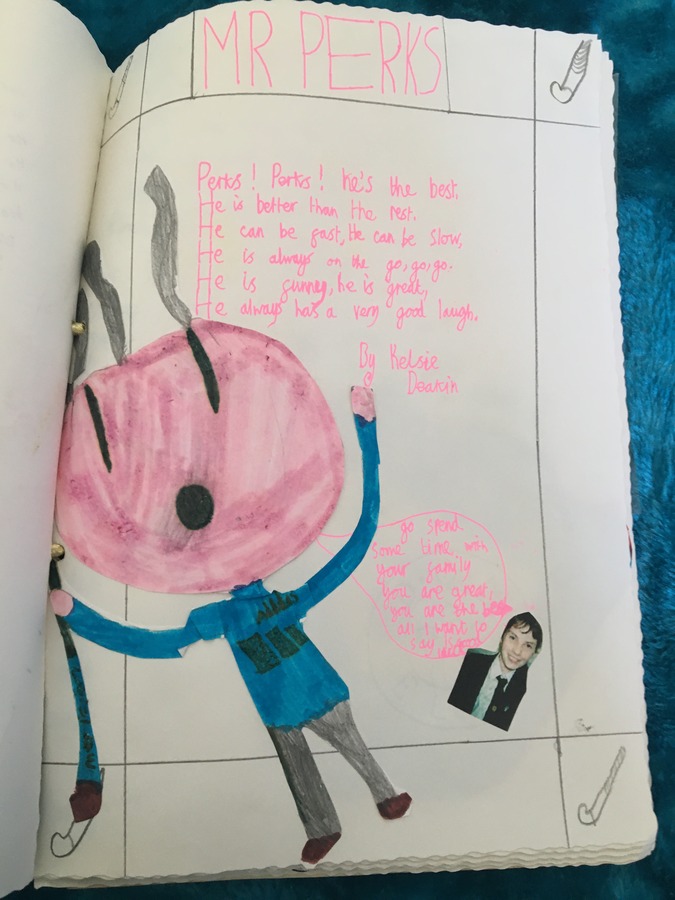 MR PERKS
Perks! Perks! he's the best,
He is better than the rest.
He can be fast, He can be slow,
He is always on the go, go, go.
He is funney, he is great,
He always has a very good laugh.
By Kelsie
Deakin
go spend
some time with
your family
you are great,
you are the best
all I want to
say is good